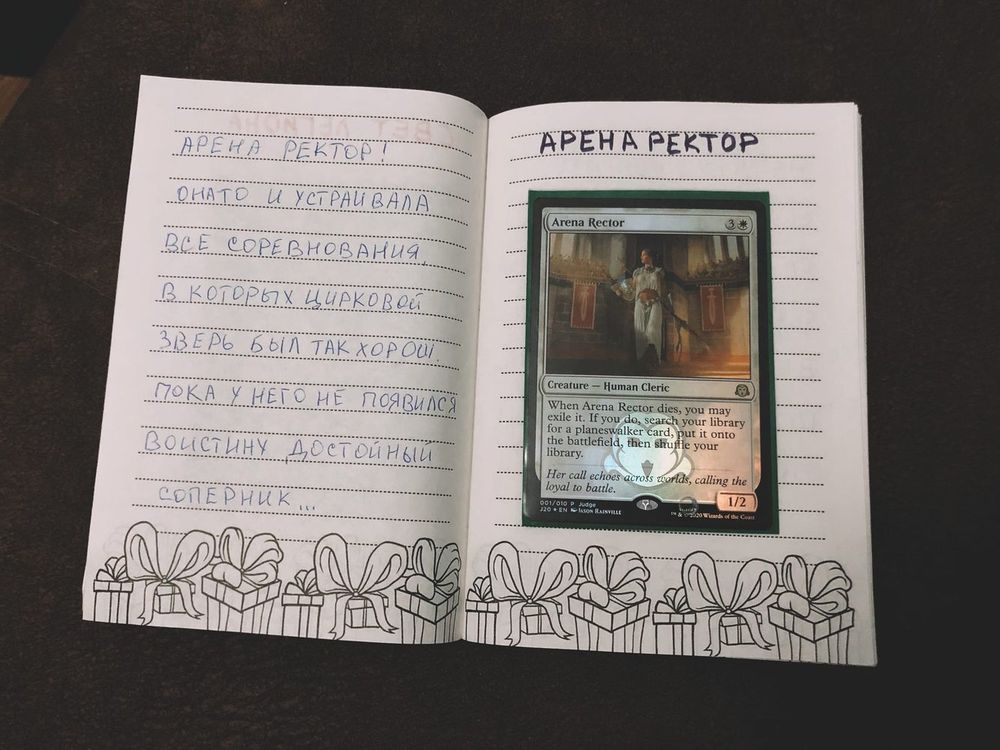 АРЕНА РЕКТОР!
ОНАТО И УСТРАИВАЛА
ВСЕ СОРЕВНОВАНИЯ,
В КОТОРЫХ ЦИРКОВОЙ
ЗВЕРЬ БЫЛ ТАК ХОРОШ.
ПОКА У НЕГО НЕ ПОЯВИЛСЯ
ВОИСТИНУ ДОСТОЙНЫЙ
СОПЕРНИК...
АРЕНА РЕКТОР
Arena Rector 3
Creature — Human Cleric
When Arena Rector dies, you may
exile it. If you do, search your library
for a planeswalker card, put it onto
the battlefield, then shuffle your
library.
Her call echoes across worlds, calling the
loyal to battle.
1/2
001/010 P Judge
J20 ★ EN Jason Rainville
™ & © 2020 Wizards of the Coast